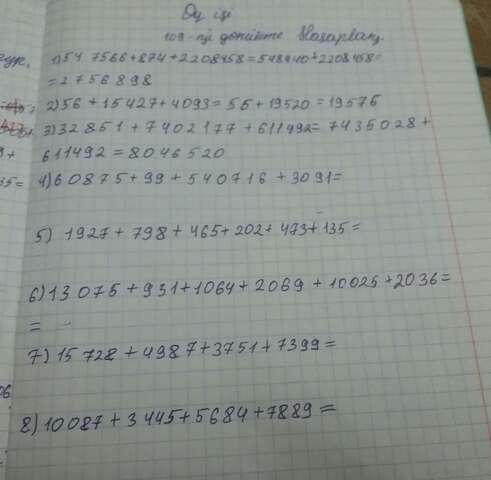 Оу іці
109-ші дәпікте Назарларц.
1) 547566+874+2208458=548440+2208458=
=2756898
2) 56+15427+4093=56+19520=19576
3) 32851+7402177+611492=7435028+
611492=8046520
4) 60875+99+540716+3091=
5) 1927+798+465+202+473+135=
6) 13075+931+1064+2069+10025+2036=
=
7) 15728+4987+3751+7399=
8) 10087+3445+5684+7889=